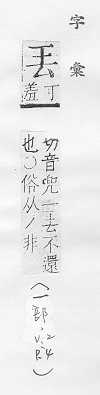 字彙
丟
丁
羞
切音兜一去不還
也○俗从丿非
(一部、V.2 P.4)